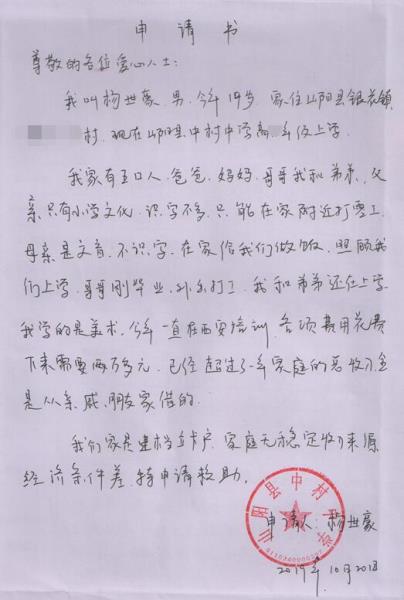 申请书
尊敬的各位爱心人士：
我叫杨世豪，男，今年19岁，家住山阳县银花镇
村，现在山阳县中村中学高年级上学。
我家有五口人，爸爸、妈妈、哥哥我和弟弟，父
亲只有小学文化，识字不多，只能在家附近打零工，
母亲是文盲，不识字，在家给我们做饭，照顾我
们上学，哥哥刚毕业，外出打工，我和弟弟还在上学
我学的是美术，今年一直在西安培训，各项费用花费
下来需要两万多元，已经超过了一年家庭的总收入全
是从亲戚、朋友家借的。
我们家是建档立卡户，家庭无稳定收入来源
经济条件差，特申请救助。
山阳县中村
申请人：杨世豪
2019年10月20日